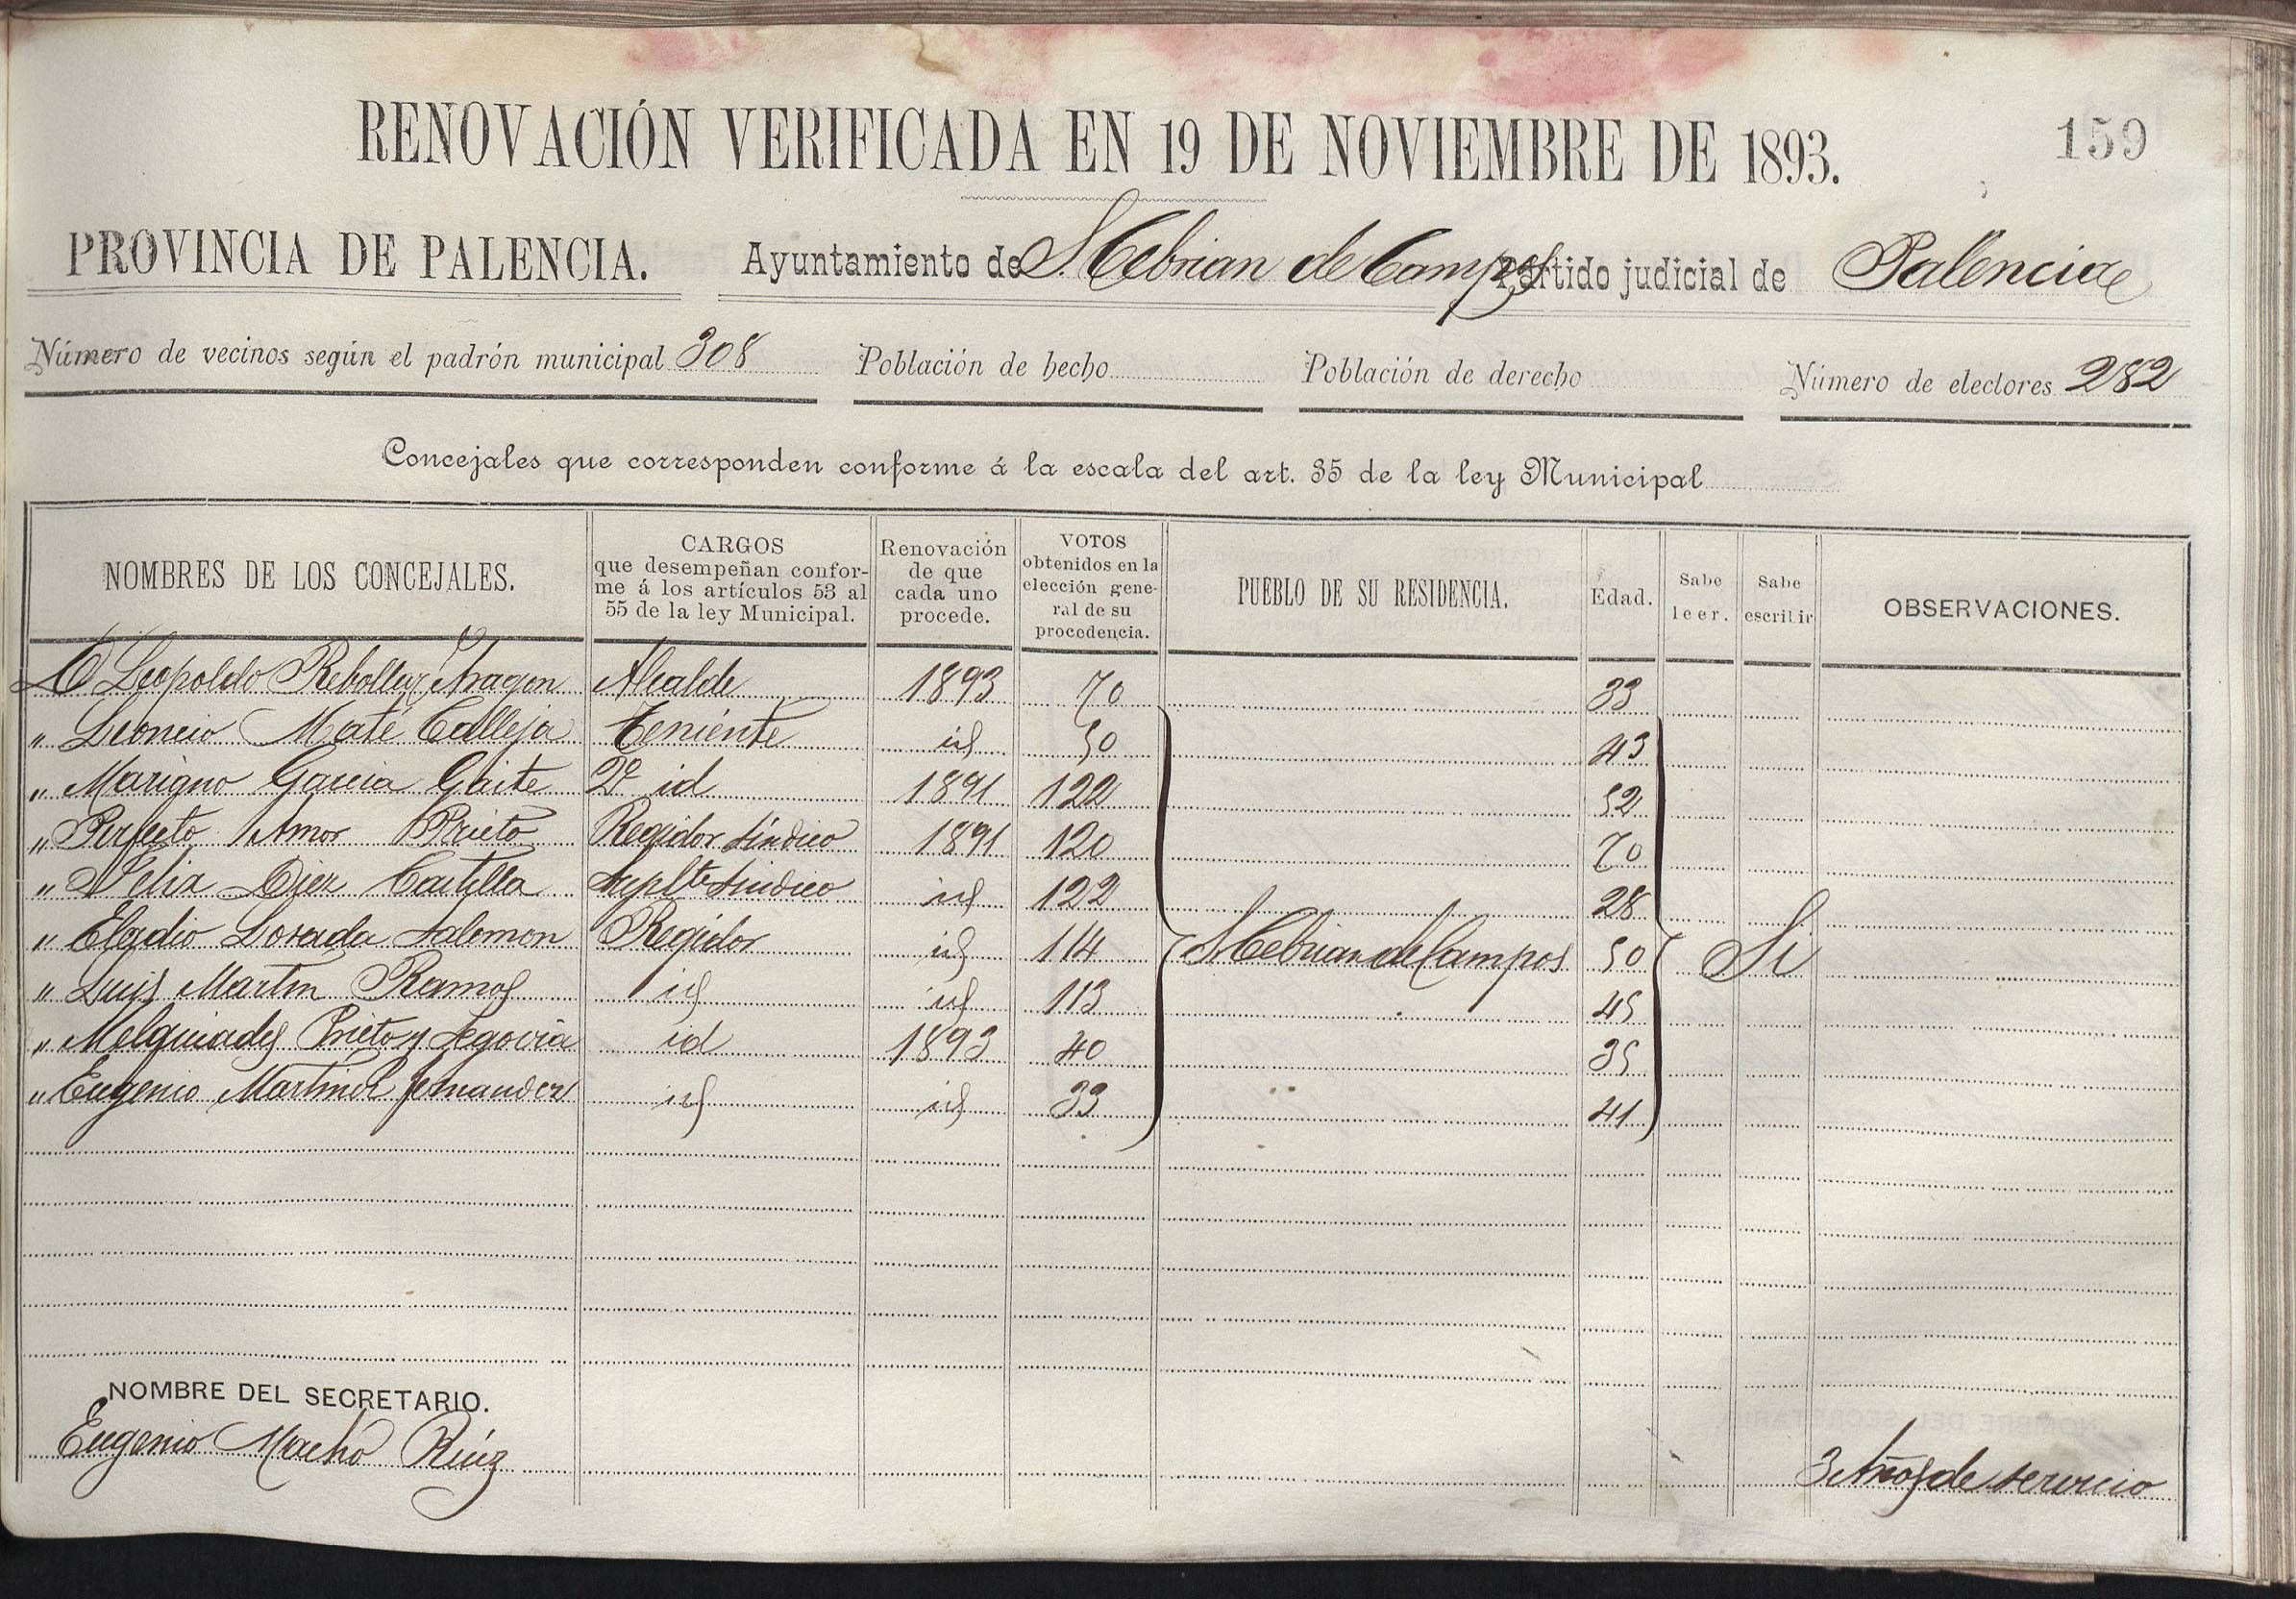 RENOVACIÓN VERIFICADA EN 19 DE NOVIEMBRE DE 1893.
159
PROVINCIA DE PALENCIA. Ayuntamiento de S. Cebrian de Campos Partido judicial de Palencia
Número de vecinos según el padrón municipal 308 Población de hecho Población de derecho Número de electores 282
Concejales que corresponden conforme á la escala del art. 35 de la ley Municipal
NOMBRES DE LOS CONCEJALES. CARGOS que desempeñan confor-me á los artículos 53 al 55 de la ley Municipal. Renovación de que cada uno procede. VOTOS obtenidos en la elección gene-ral de su procedencia. PUEBLO DE SU RESIDENCIA. Edad. Sabe leer. Sabe escribir OBSERVACIONES.
D Leopoldo Rebollar Aragon Alcalde 1893 70 33
„ Leoncio Maté Calleja Teniente id 50 43
„ Mariano Garcia Gaite 2º id 1891 122 52
„ Perfecto Amor Prieto Regidor Síndico 1891 120 70
„ Felix Diez Castilla Suplte Sindico id 122 28
„ Eladio Losada Salomon Regidor id 114 S. Cebrian de Campos 50 Si
„ Luis Martin Ramos id id 113 45
„ Melquiades Prieto y Segovia id 1893 40 35
„ Eugenio Martinez Fernandez id id 33 41
NOMBRE DEL SECRETARIO.
Eugenio Macho Ruíz 3 Años de servicio